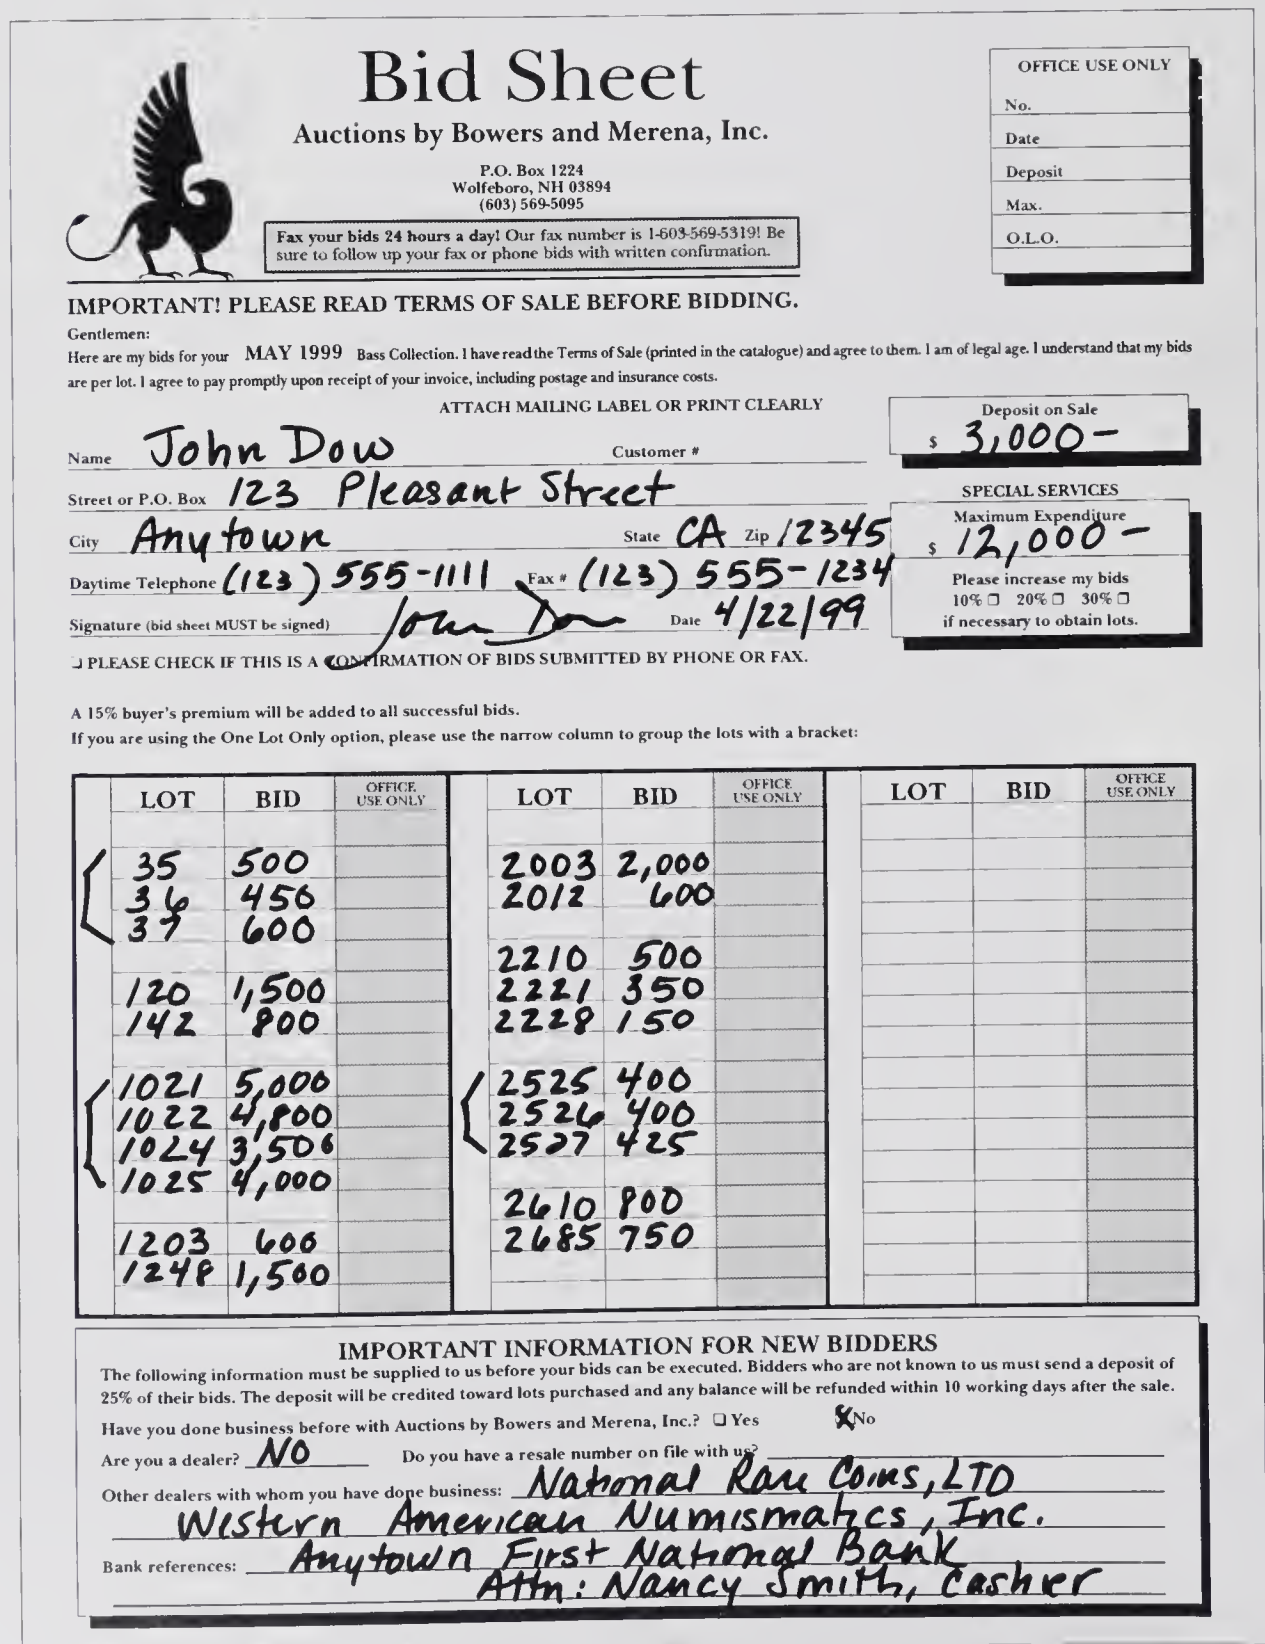 Bid Sheet
Auctions by Bowers and Merena, Inc.
P.O. Box 1224
Wolfeboro, NH 03894
(603) 569-5095
Fax your bids 24 hours a day! Our fax number is 1-603-569-5319! Be
sure to follow up your fax or phone bids with written confirmation.
OFFICE USE ONLY
No.
Date
Deposit
Max.
O.L.O.
IMPORTANT! PLEASE READ TERMS OF SALE BEFORE BIDDING.
Gentlemen:
Here are my bids for your MAY 1999 Bass Collection. I have read the Terms of Sale (printed in the catalogue) and agree to them. I am of legal age. I understand that my bids
are per lot. I agree to pay promptly upon receipt of your invoice, including postage and insurance costs.
ATTACH MAILING LABEL OR PRINT CLEARLY
Name John Dow Customer #
Street or P.O. Box 123 Pleasant Street
City Anytown State CA Zip 12345
Daytime Telephone (123) 555-1111 Fax # (123) 555-1234
Signature (bid sheet MUST be signed) John Dow Date 4/22/99
❏ PLEASE CHECK IF THIS IS A CONFIRMATION OF BIDS SUBMITTED BY PHONE OR FAX.
Deposit on Sale
$ 3,000-
SPECIAL SERVICES
Maximum Expenditure
$ 12,000-
Please increase my bids
10% ❏ 20% ❏ 30% ❏
if necessary to obtain lots.
A 15% buyer's premium will be added to all successful bids.
If you are using the One Lot Only option, please use the narrow column to group the lots with a bracket:
LOT BID OFFICE USE ONLY
35 500
36 450
37 600
120 1,500
142 800
1021 5,000
1022 4,800
1024 3,500
1025 4,000
1203 600
1248 1,500
LOT BID OFFICE USE ONLY
2003 2,000
2012 600
2210 500
2221 350
2228 150
2525 400
2526 400
2527 425
2610 800
2685 750
LOT BID OFFICE USE ONLY
IMPORTANT INFORMATION FOR NEW BIDDERS
The following information must be supplied to us before your bids can be executed. Bidders who are not known to us must send a deposit of
25% of their bids. The deposit will be credited toward lots purchased and any balance will be refunded within 10 working days after the sale.
Have you done business before with Auctions by Bowers and Merena, Inc.? ❏ Yes X No
Are you a dealer? NO Do you have a resale number on file with us?
Other dealers with whom you have done business: National Rare Coins, LTD
Western American Numismatics, Inc.
Bank references: Anytown First National Bank
Attn: Nancy Smith, Cashier